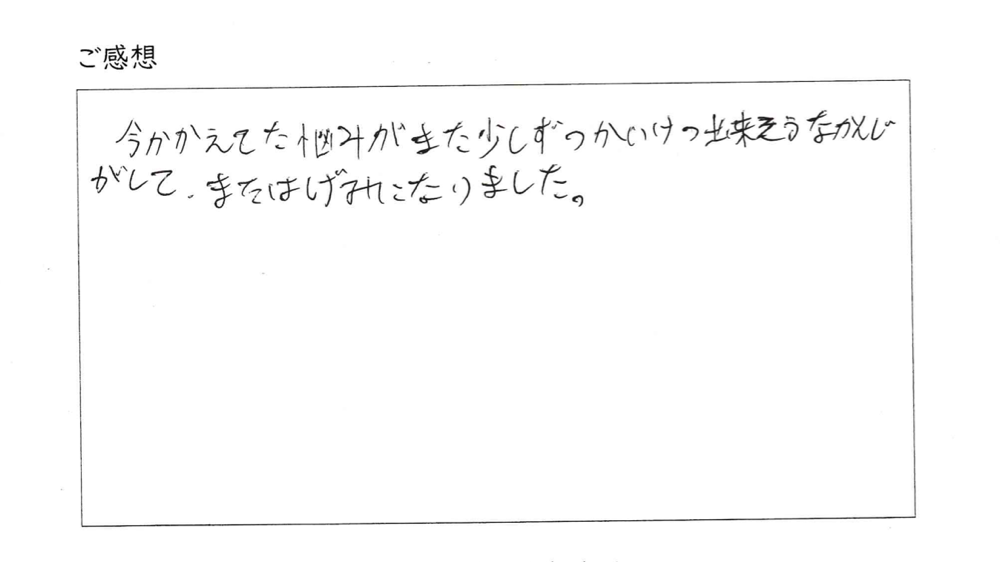 ご感想
今かかえてた悩みがまた少しずつかいけつ出来そうなかんじ
がして、またはげみになりました。